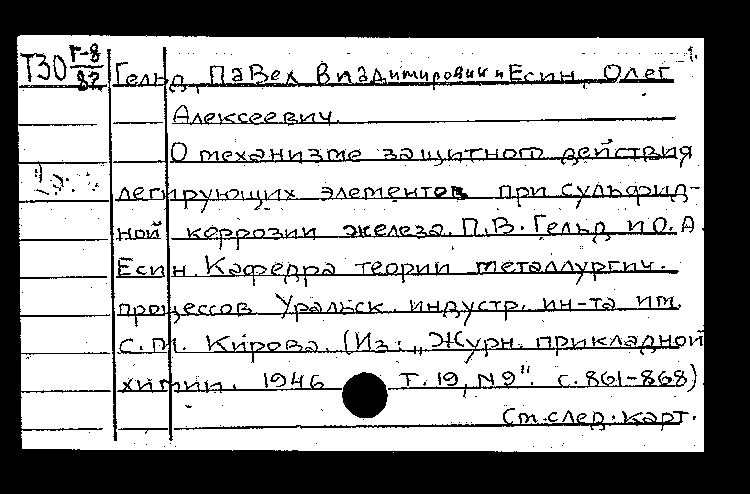 Т30 Г-8/82 Гельд, Павел Владимирович и Есин, Олег
Алексеевич.
О механизме защитного действия
легирующих элементов при сульфид-
ной коррозии железа. П.В. Гельд и О.А.
Есин. Кафедра теории металлургич.
процессов Уральск. индустр. ин-та им.
С.М. Кирова. (Из: „Журн. прикладной
химии. 1946 Т. 19, N 9". с. 861-868)
См. след. карт.